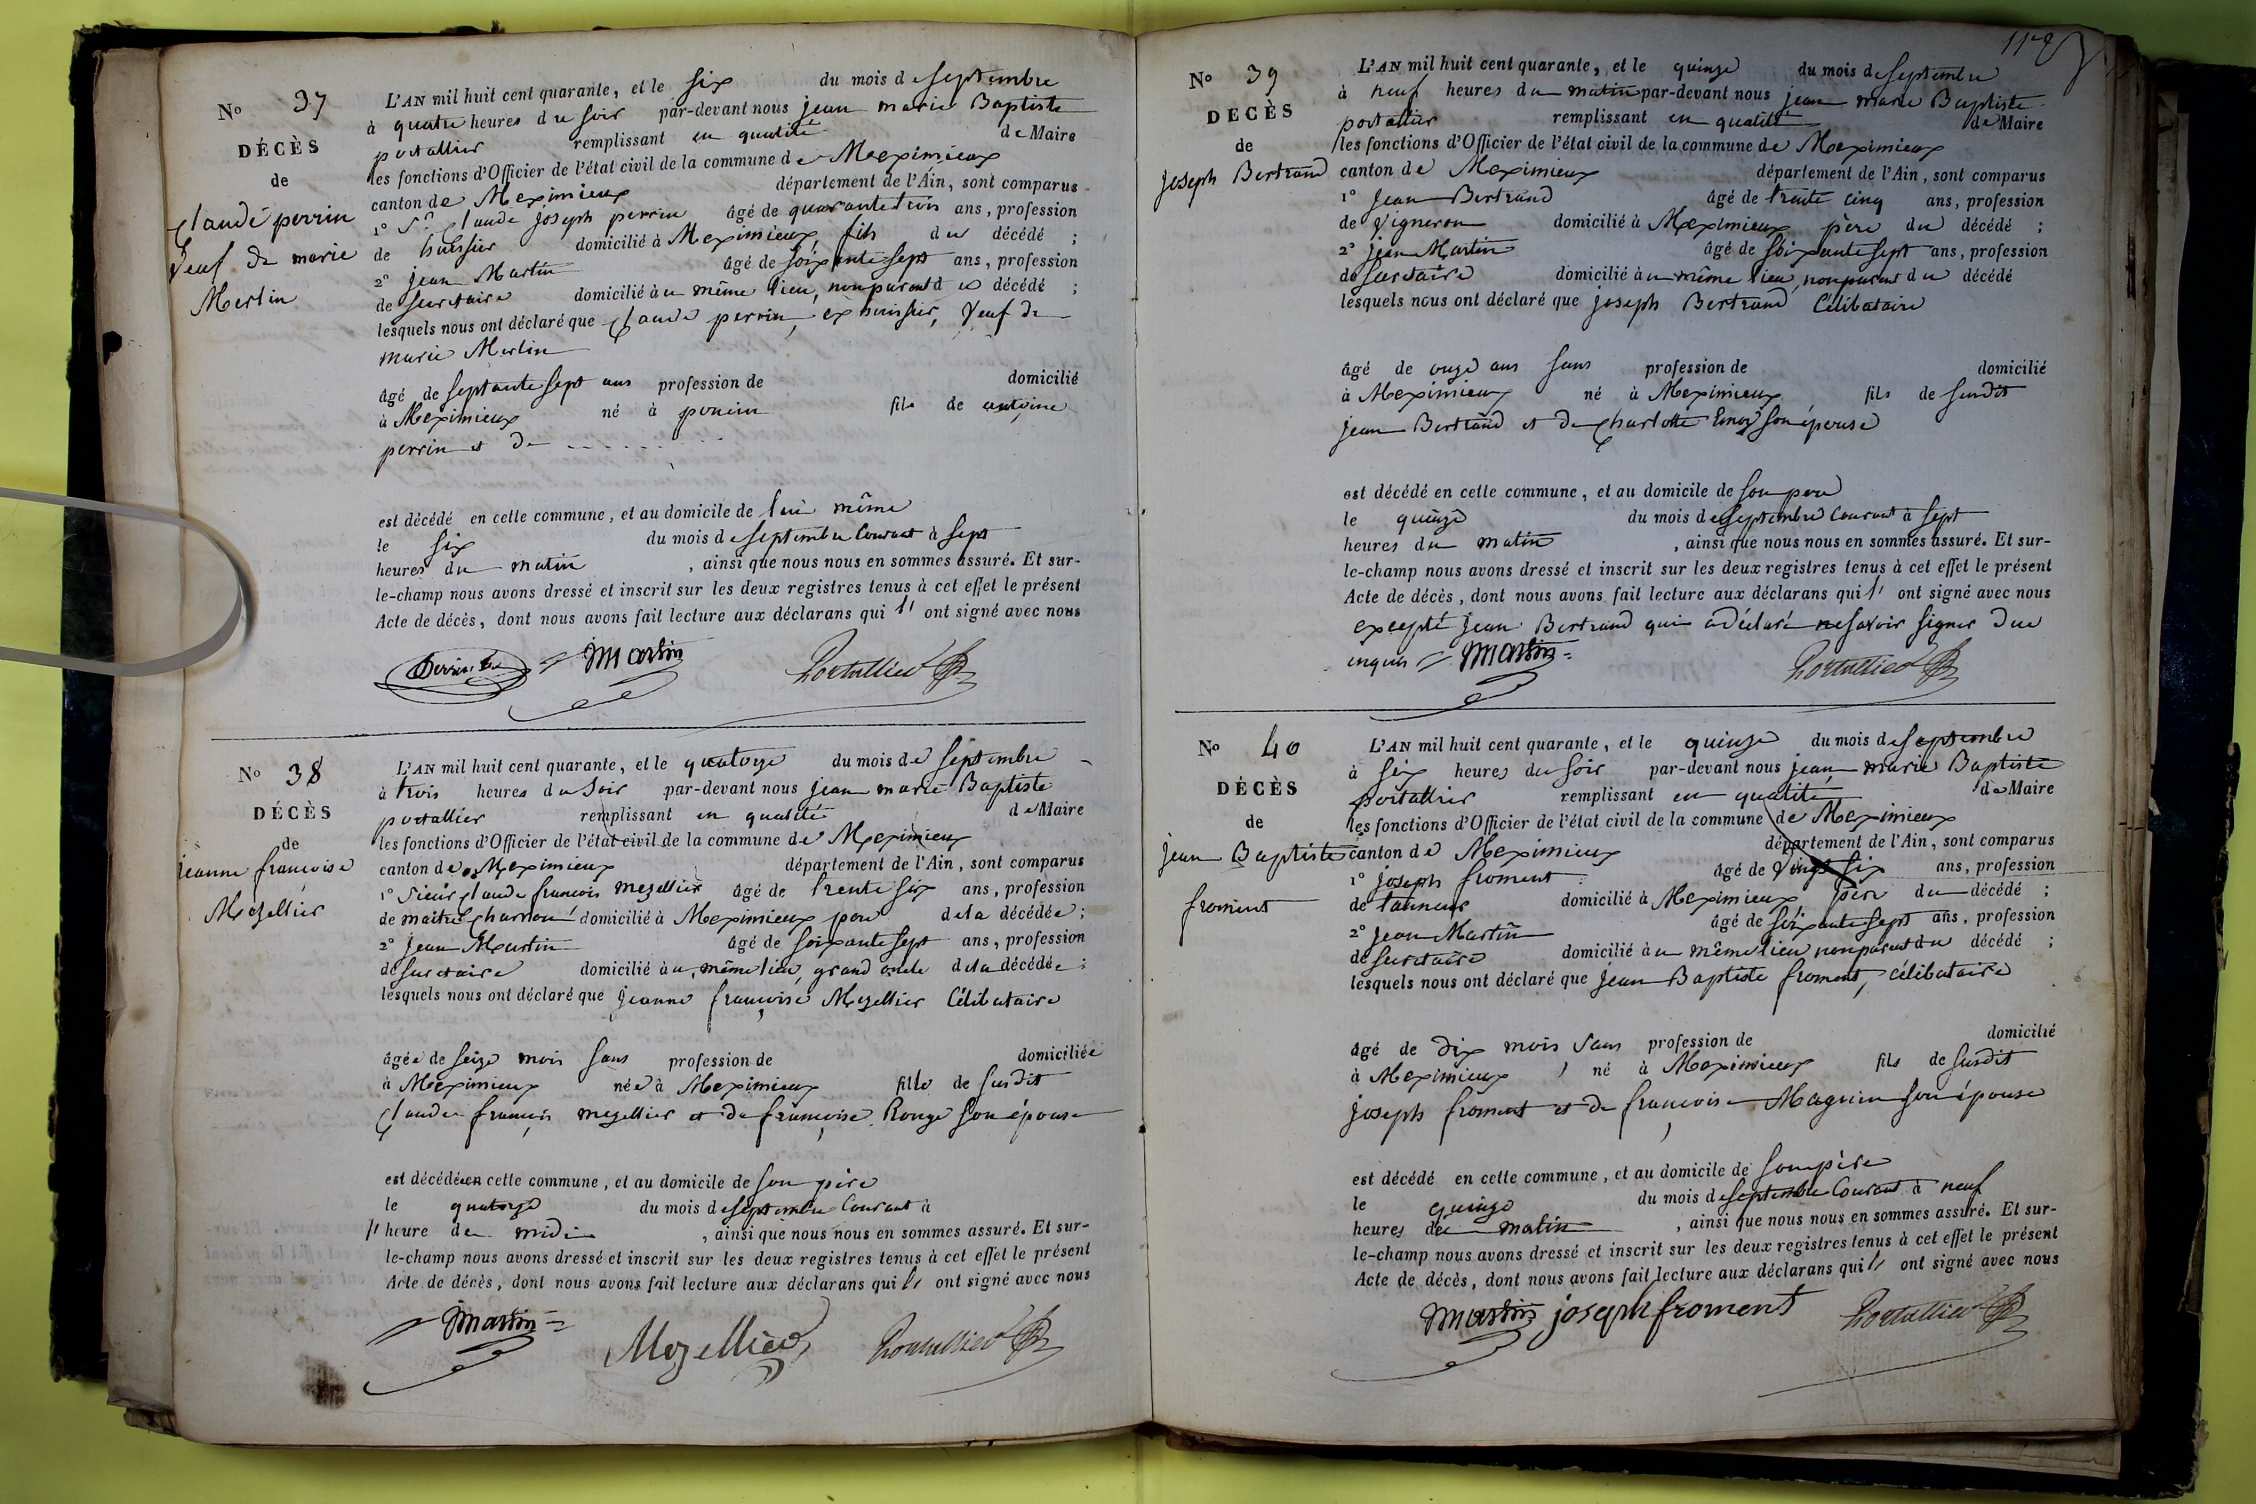 N° 37
DÉCÈS
de
Claude perrin
Veuf de marie
Merlin
L'AN mil huit cent quarante, et le six du mois de septembre
à quatre heures du soir par-devant nous jean marie Baptiste
portallier remplissant en qualité de Maire
les fonctions d'Officier de l'état civil de la commune de Meximieux
canton de Meximieux département de l'Ain, sont comparus
1° Sr. Claude joseph perrin âgé de quarante trois ans, profession
de huissier domicilié à Meximieux, fils du décédé ;
2° jean Martin âgé de soixante sept ans, profession
de secretaire domicilié au même lieu, non parent du décédé ;
lesquels nous ont déclaré que Claude perrin, ex huissier, Veuf de
marie Merlin
âgé de septante sept ans profession de domicilié
à Meximieux né à poncin fils de antoine
perrin et de - - - - - -
est décédé en cette commune, et au domicile de lui même
le six du mois de septembre Courant à sept
heures du matin, ainsi que nous nous en sommes assuré. Et sur-
le-champ nous avons dressé et inscrit sur les deux registres tenus à cet effet le présent
Acte de décès, dont nous avons fait lecture aux déclarans qui l' ont signé avec nous
Perrin JMartin Portallier
N° 38
DÉCÈS
de
jeanne françoise
Mezellier
L'AN mil huit cent quarante, et le quatorze du mois de septembre
à trois heures du Soir par-devant nous jean marie Baptiste
portallier remplissant en qualité de Maire
les fonctions d'Officier de l'état civil de la commune de Meximieux
canton de Meximieux département de l'Ain, sont comparus
1° Sieur Claude françois mezellier âgé de trente six ans, profession
de maitre Charron domicilié à Meximieux pere de la décédée ;
2° Jean Martin âgé de soixante sept ans, profession
de secretaire domicilié au même lieu, grand oncle de la décédée ;
lesquels nous ont déclaré que jeanne françoise Mezellier Célibataire
âgée de seize mois sans profession de domiciliée
à Meximieux née à Meximieux fille de susdit
Claude françois mezellier et de françoise Rouge son épouse
est décédée en cette commune, et au domicile de son père
le quatorze du mois de septembre Courant à
l' heure de midi, ainsi que nous nous en sommes assuré. Et sur-
le-champ nous avons dressé et inscrit sur les deux registres tenus à cet effet le présent
Acte de décès, dont nous avons fait lecture aux déclarans qui l' ont signé avec nous
JMartin Mezellier Portallier
N° 39
DECÈS
de
joseph Bertrand
L'AN mil huit cent quarante, et le quinze du mois de septembre
à neuf heures du matin par-devant nous jean marie Baptiste
portallier remplissant en qualité de Maire
les fonctions d'Officier de l'état civil de la commune de Meximieux
canton de Meximieux département de l'Ain, sont comparus
1° Jean Bertrand âgé de trente cinq ans, profession
de Vigneron domicilié à Meximieux père du décédé ;
2° jean Martin âgé de soixante sept ans, profession
de secretaire domicilié au même lieu non parent du décédé
lesquels nous ont déclaré que joseph Bertrand Célibataire
âgé de onze ans sans profession de domicilié
à Meximieux né à Meximieux fils de susdit
jean Bertrand et de Charlotte son épouse
est décédé en cette commune, et au domicile de son pere
le quinze du mois de septembre Courant à sept
heures du matin, ainsi que nous nous en sommes assuré. Et sur-
le-champ nous avons dressé et inscrit sur les deux registres tenus à cet effet le présent
Acte de décès, dont nous avons fait lecture aux déclarans qui l' ont signé avec nous
excepté jean Bertrand qui a déclaré ne savoir signer Due
enquis JMartin Portallier
N° 40
DÉCÈS
de
jean Baptiste
froment
L'AN mil huit cent quarante, et le quinze du mois de septembre
à six heures du soir par-devant nous jean marie Baptiste
portallier remplissant en qualité de Maire
les fonctions d'Officier de l'état civil de la commune de Meximieux
canton de Meximieux département de l'Ain, sont comparus
1° joseph froment âgé de Vingt six ans, profession
de tanneur domicilié à Meximieux père du décédé ;
2° Jean Martin âgé de soixante sept ans, profession
de secretaire domicilié au même lieu non parent du décédé ;
lesquels nous ont déclaré que jean Baptiste froment, célibataire
âgé de dix mois sans profession de domicilié
à Meximieux, né à Meximieux fils de susdit
joseph froment et de françoise Magnin son épouse
est décédé en cette commune, et au domicile de son père
le quinze du mois de septembre Courant à neuf
heures du matin, ainsi que nous nous en sommes assuré. Et sur-
le-champ nous avons dressé et inscrit sur les deux registres tenus à cet effet le présent
Acte de décès, dont nous avons fait lecture aux déclarans qui l' ont signé avec nous
JMartin joseph froment Portallier